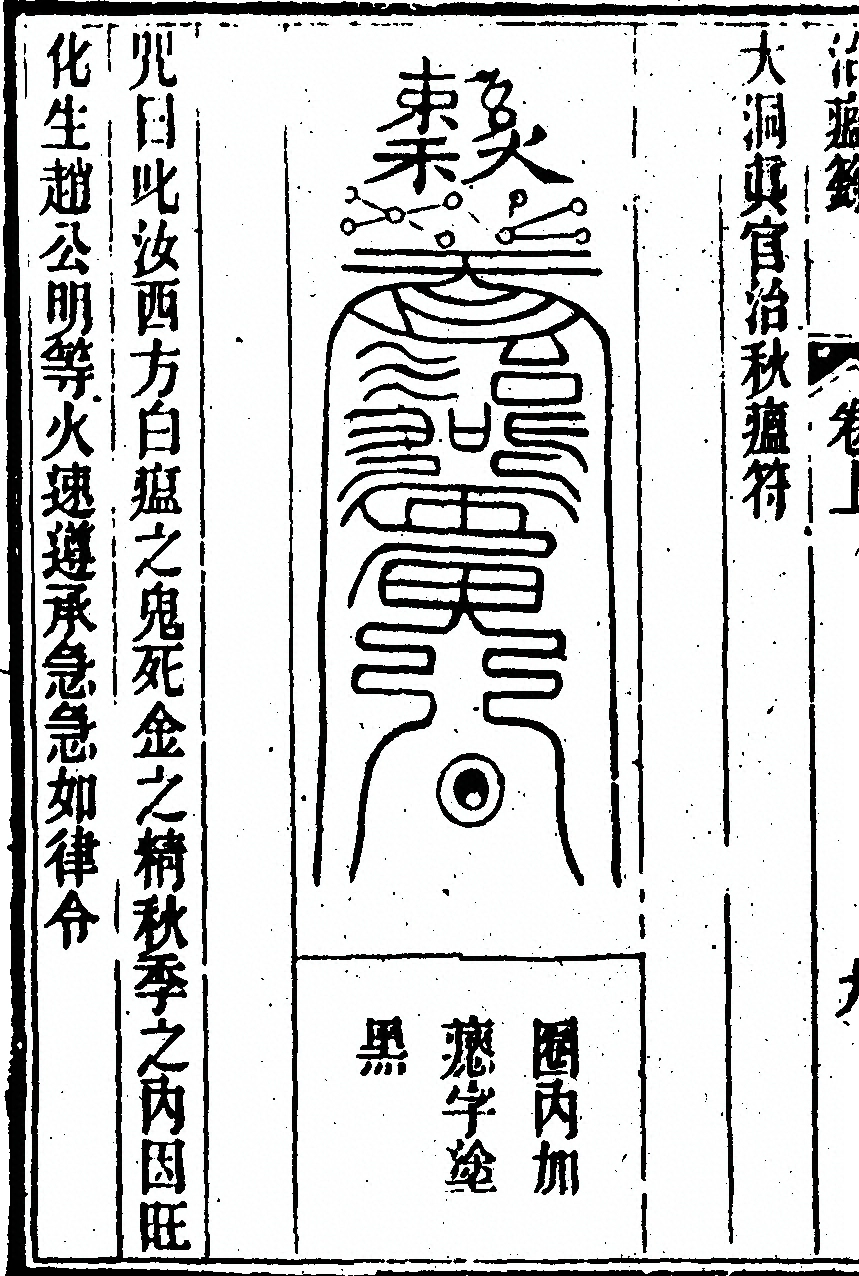 治瘟
卷上
大洞真官治秋瘟符
圈內加
瘛字塗
黑
咒曰叱汝西方白瘟之鬼死金之精秋季之內因旺
化生趙公明等火速遵承急急如律令